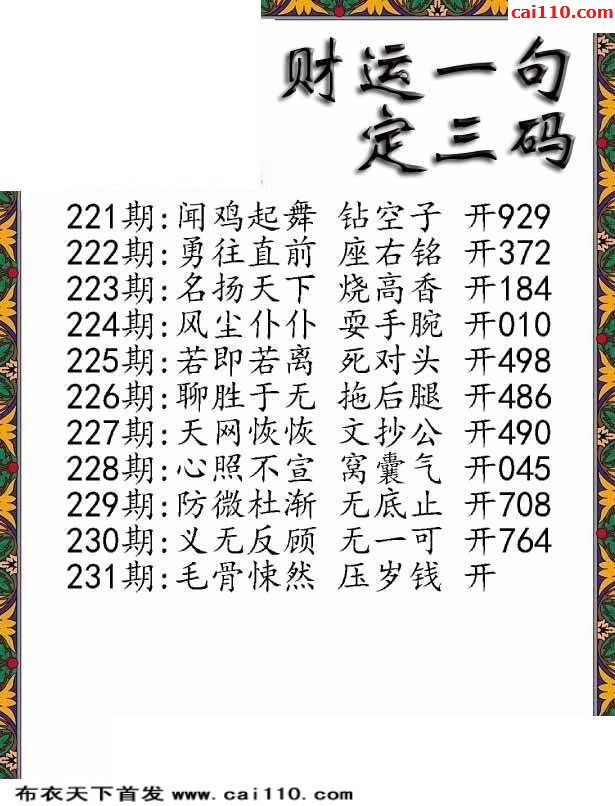 cai110.com
财运一句
定三码
221期:闻鸡起舞 钻空子 开929
222期:勇往直前 座右铭 开372
223期:名扬天下 烧高香 开184
224期:风尘仆仆 耍手腕 开010
225期:若即若离 死对头 开498
226期:聊胜于无 拖后腿 开486
227期:天网恢恢 文抄公 开490
228期:心照不宣 窝囊气 开045
229期:防微杜渐 无底止 开708
230期:义无反顾 无一可 开764
231期:毛骨悚然 压岁钱 开
布衣天下首发 www.cai110.com